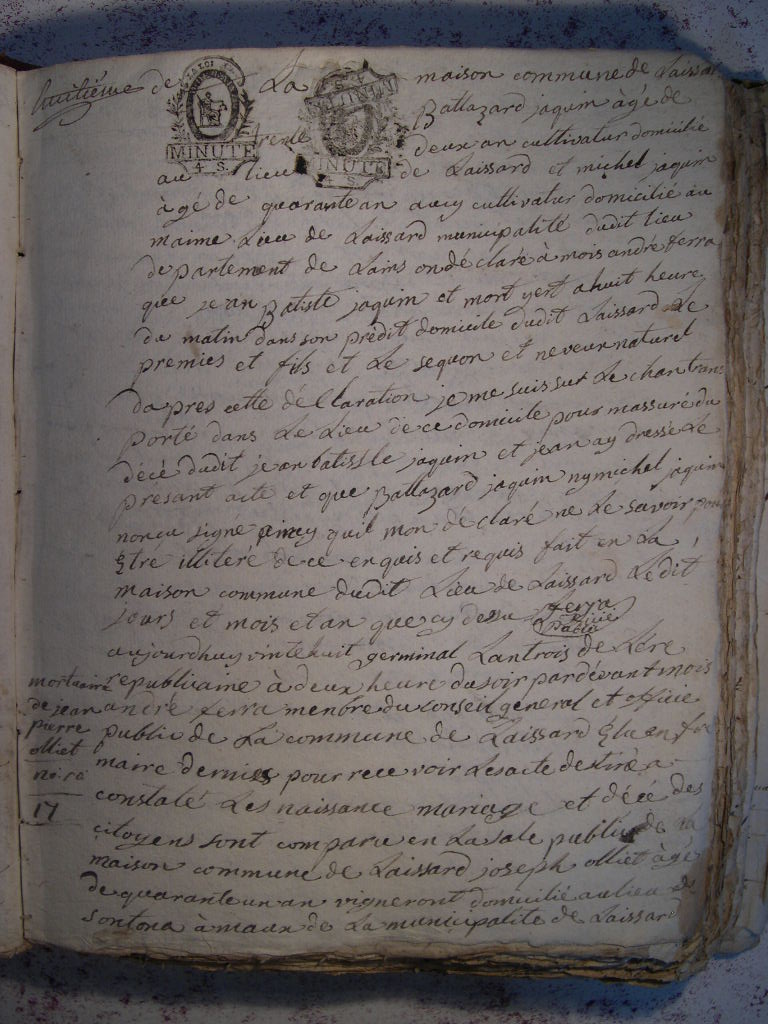 huitiéme de La maison commune de Laissard
Ballazard jaquin àgé de
trente deux an cultivatur domicilié
au lieu de Laissard et michel jaquin
àgé de quarante an aucy cultivatur domicilié au
maime Lieu de Laissard municipalité dudit lieu
departement de Lains ondéclaré à mois andré ferra
que jean Batiste jaquin et mort yert a huit heure
du matin dans son prédit domicile dudit Laissard Le
premies et fils et Le segon et neveur naturel
dapres cette déClaration je me suis sur Le chan trans
porté dans Le Lieu de ce domicile pour massuré du
décé dudit jean batisLle jaquin et jean ay dressé Le
présant acte et que Ballazard jaquin ny michel jaquin
nonçu signé aincy quil mon déclaré ne Le savoir pour
Etre illiteré de ce enquis et requis fait en La
maison commune dudit Lieu de Laissard Ledit
jours et mois et an que cy dessu ferra
officié
public
aujourdhuy vintehuit germinal Lantrois de Lére
republicaine à deux heure du soir pardévant mois
andré ferra menbre du conseil general et officié
public de La commune de Laissard Elu en fri
maire dernies pour recevoir Lesacte destiré a
constaté Les naissance mariage et décé des
citoyens sont comparu en La sale publique de la
maison commune de Laissard joseph olliet àgé
de quarante un an vigneront domicilié au lieu de
sontona à maux de La municipalite de Laissard
mortuaire
de jean
pierre
olliet
no
17
MINUTE
4. S.
MINUTE
4 S.
LA LOI